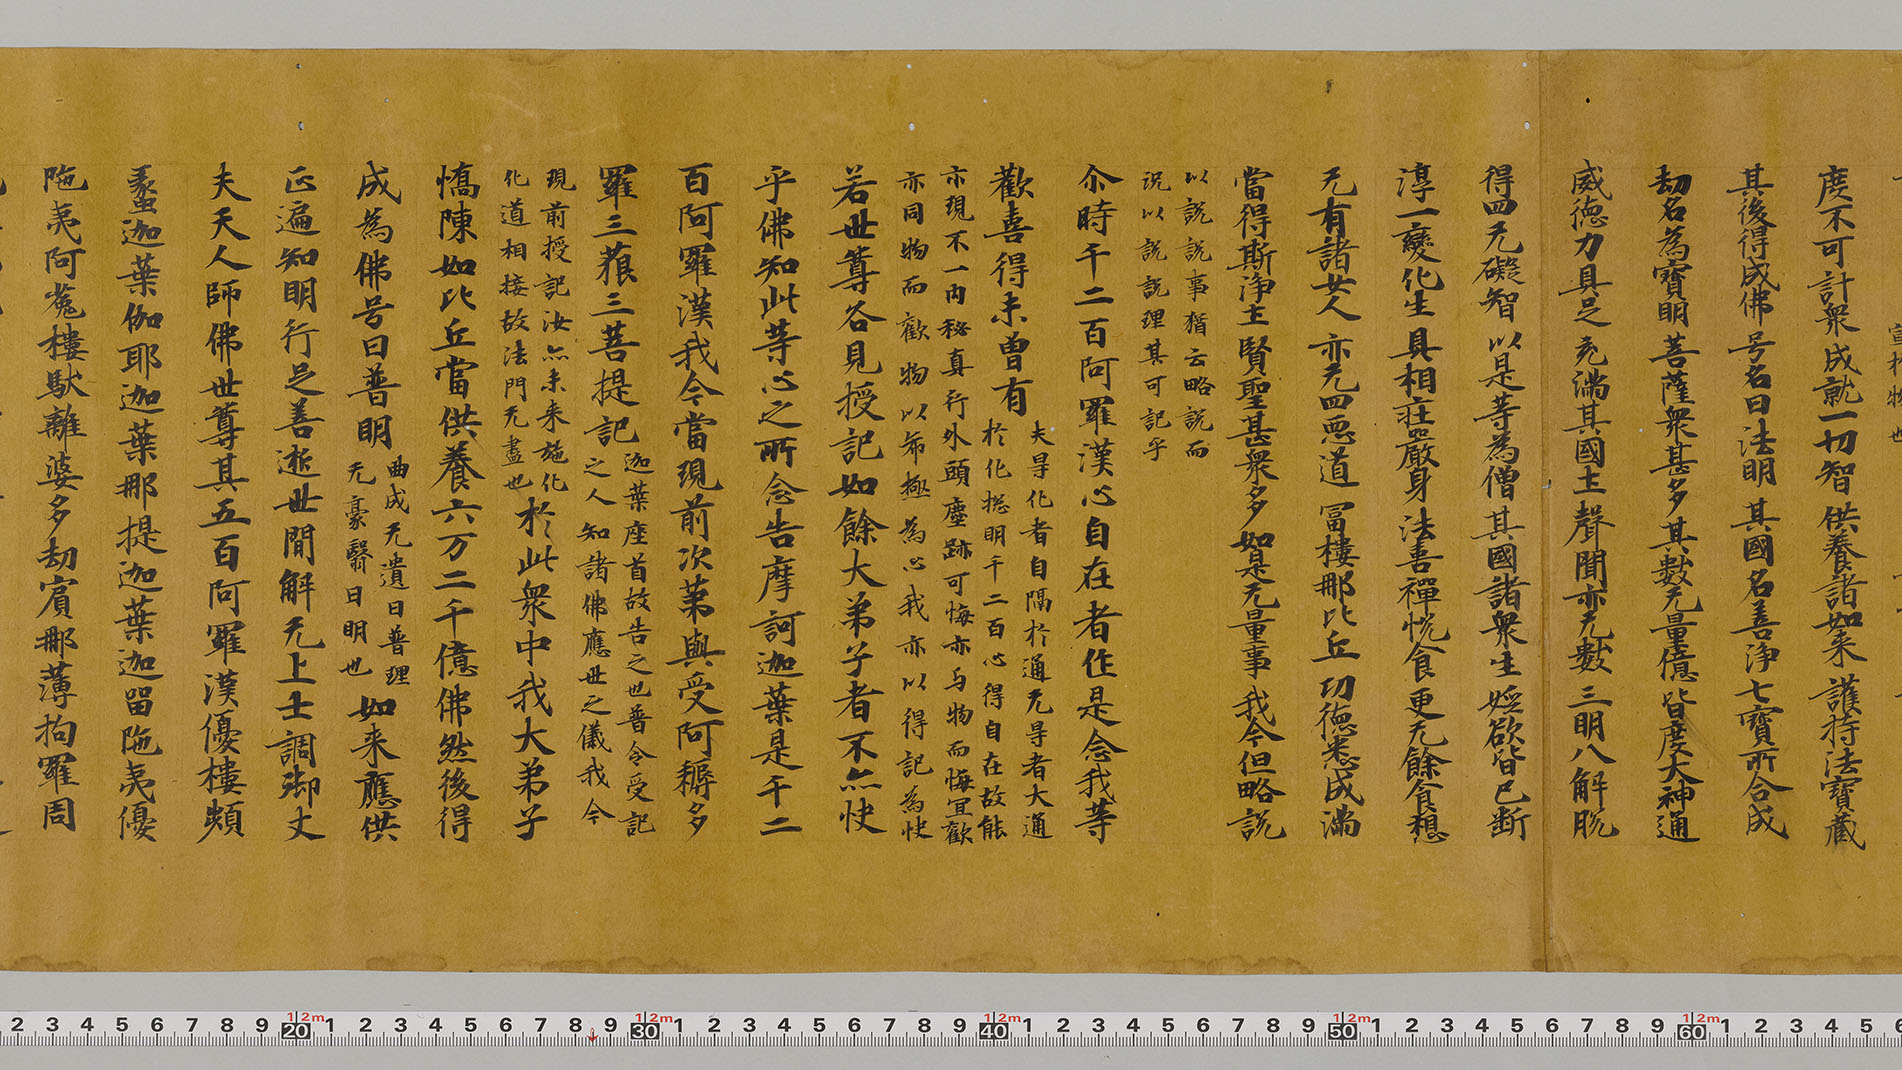 度不可計衆成就一切智供養諸如来護持法寶蔵
其後得成佛号名曰法明其國名善浄七寶所合成
劫名為寶明菩薩衆甚多其數无量億皆度大神通
威徳力具足充滿其國土聲聞亦无數三明八解脱
得四无礙智以是等為僧其國諸衆生婬欲皆已斷
淳一變化生具相莊嚴身法喜禪悅食更无餘食想
无有諸女人亦无四悪道冨樓那比丘功徳悉成滿
當得斯浄土賢聖甚衆多如是无量事我今但略説
以説説事猶云略説而
况以説説理其可記乎
尒時千二百阿羅漢心自在者作是念我等
歡喜得未曽有
夫㝵化者自隔於通无㝵者大通
於化捴明千二百心得自在故能
亦現不一内秘真行外頭塵跡可悔亦与物而悔冝歡
亦同物而歡物以希極為心我亦以得記為快
若世尊各見授記如餘大弟子者不亦快
乎佛知此等心之所念告摩訶迦葉是千二
百阿羅漢我今當現前次苐與受阿耨多
羅三藐三菩提記
迦葉座首故告之也普令受記
之人知諸佛應世之儀我今
現前授記汝亦未来施化
化道相接故法門无盡也
於此衆中我大弟子
憍陳如比丘當供養六万二千億佛然後得
成為佛号曰普明
曲成无遺曰普理
无豪翳曰明也
如来應供
正遍知明行足善逝世間解无上士調御丈
夫天人師佛世尊其五百阿羅漢優樓頻
螽迦葉伽耶迦葉那提迦葉迦留陁夷優
陁夷阿㝹樓馱離婆多劫賓那薄拘羅周